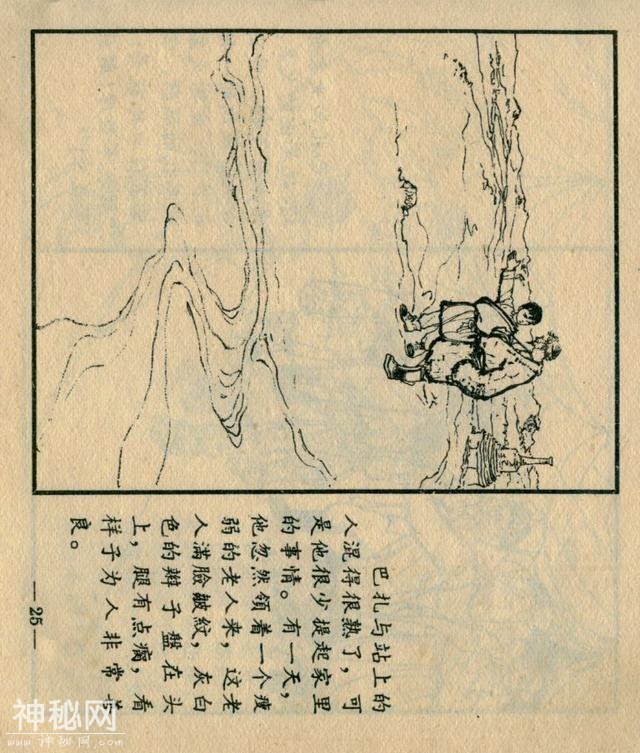 巴扎与站上的
人混得很熟了，可
是他很少提起家里
的事情。有一天，
他忽然領着一个瘦
弱的老人来，这老
人满臉皺紋，灰白
色的辮子盤在头
上，腿有点瘸，看
样子为人非常善
良。
—25—
神秘网
www.神秘网.com